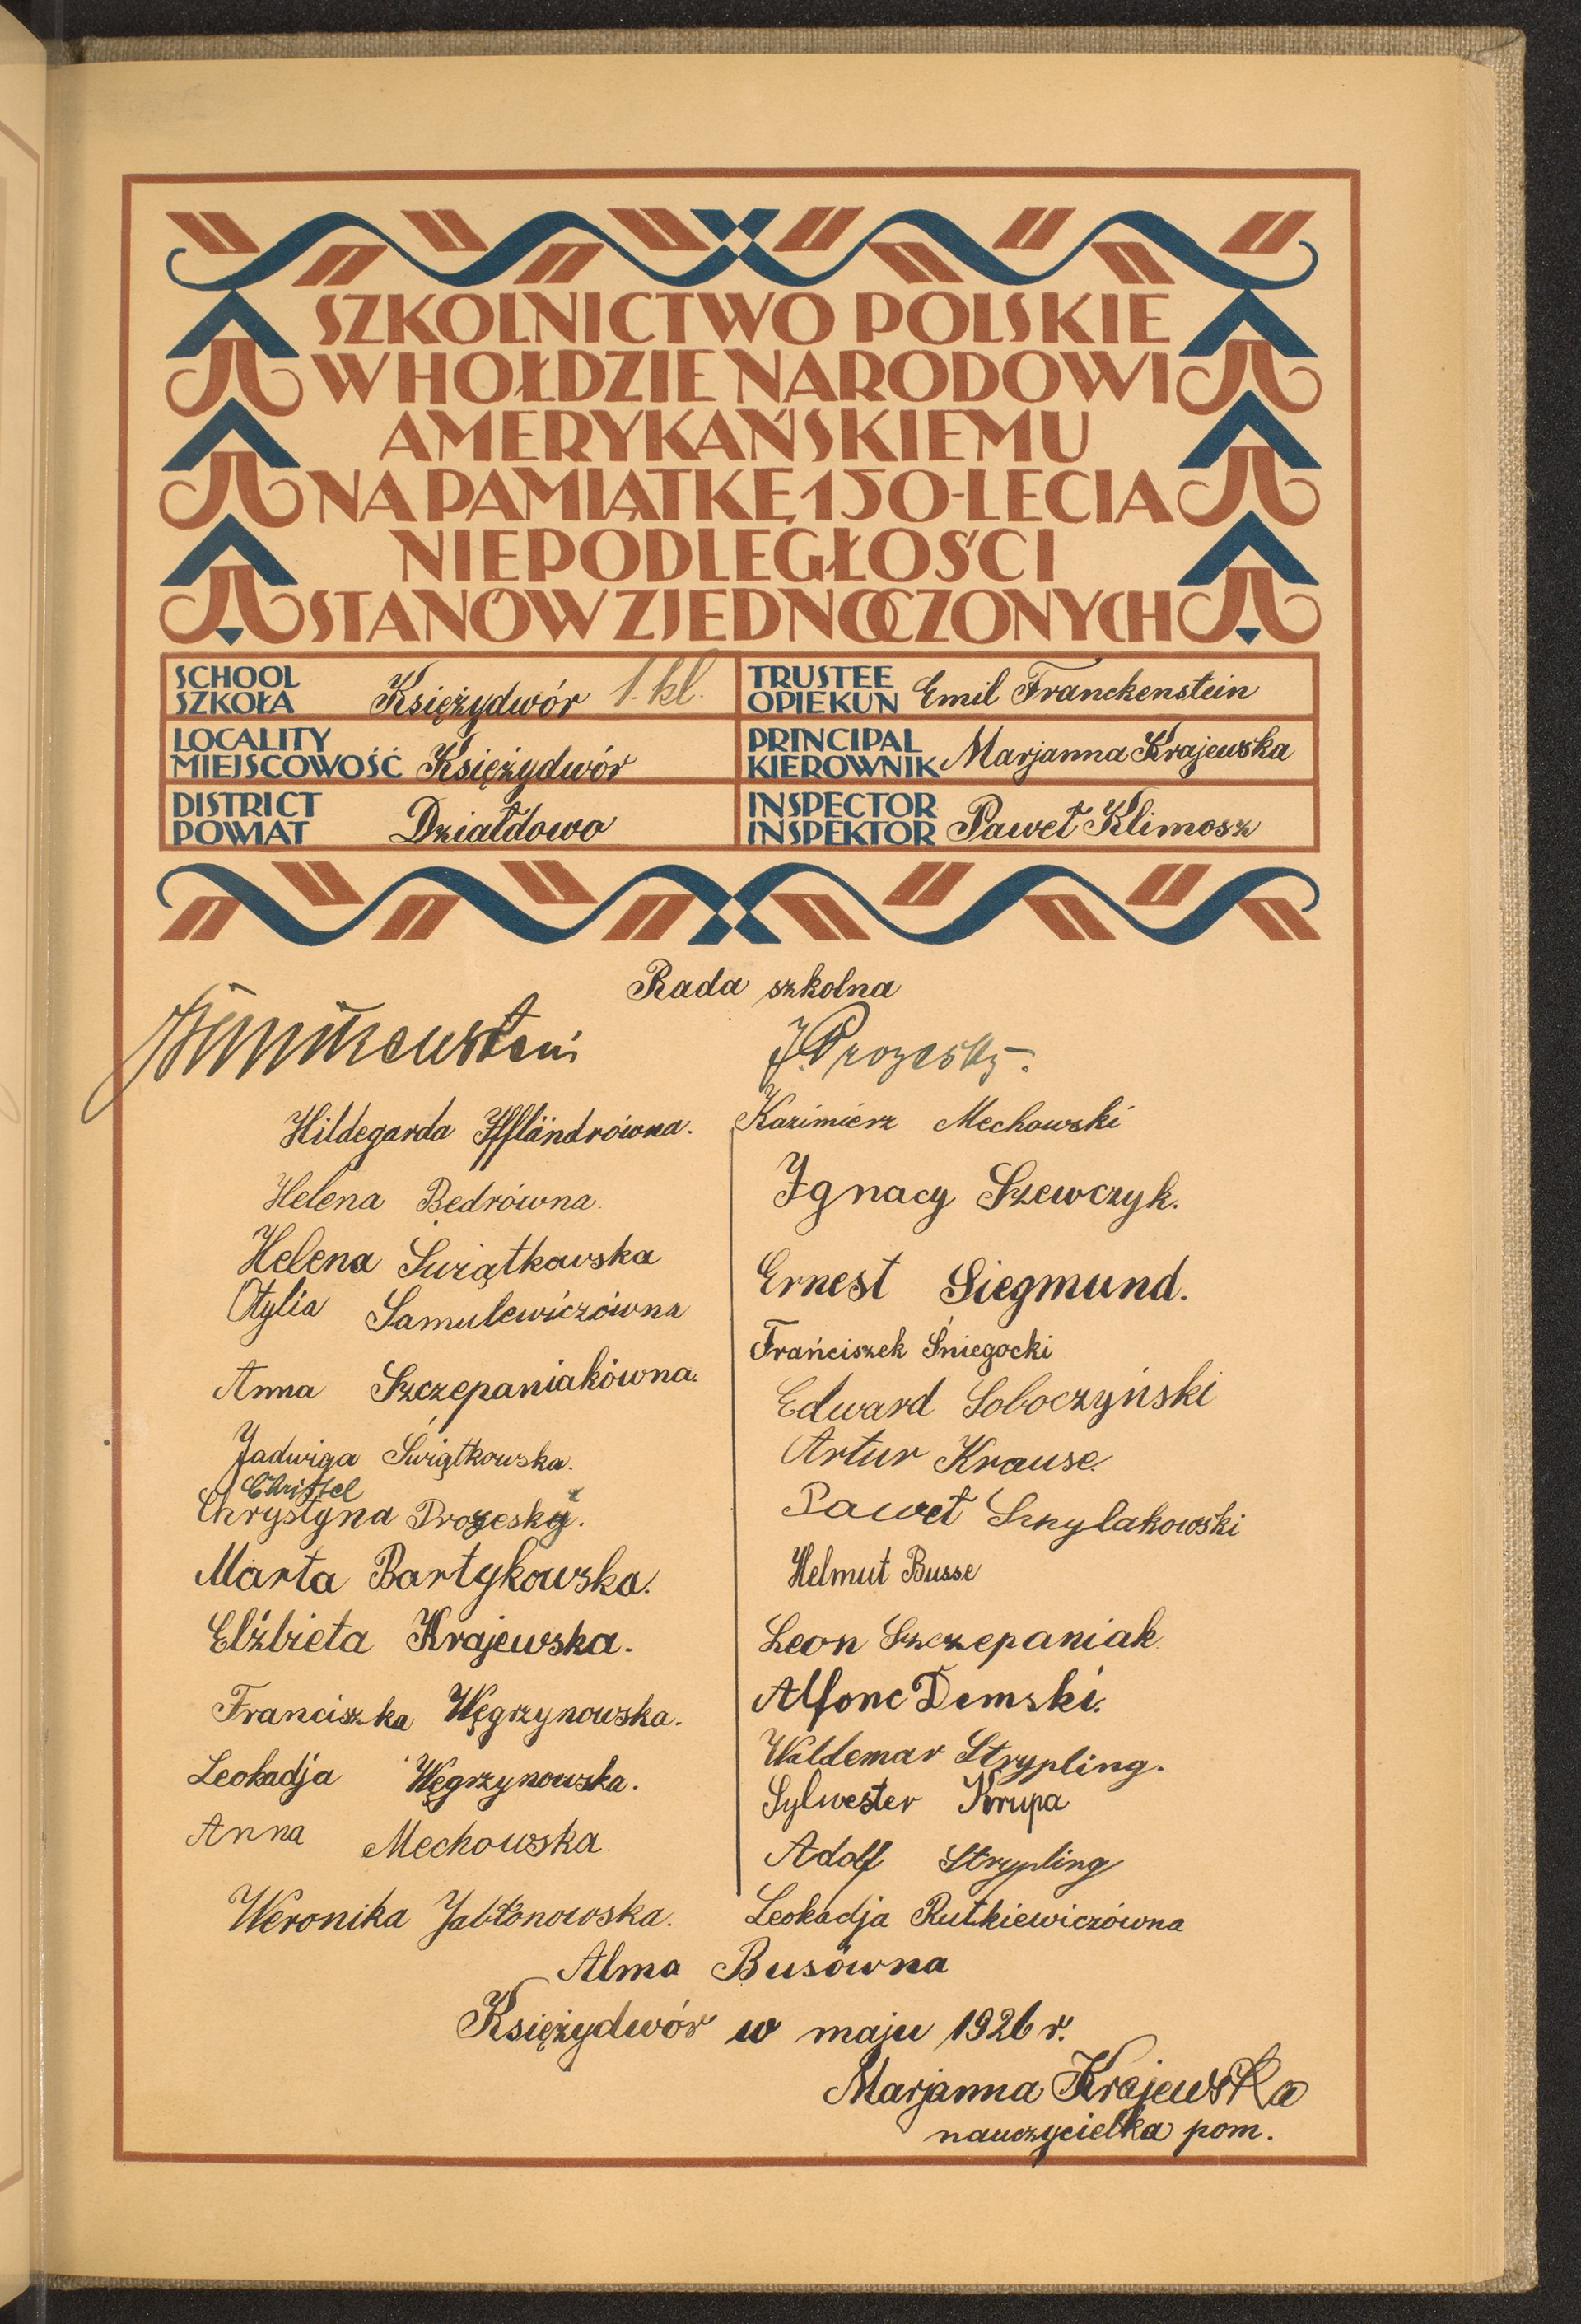 SZKOLNICTWO POLSKIE
W HOŁDZIE NARODOWI
AMERYKAŃSKIEMU
NA PAMIĄTKĘ 150-LECIA
NIEPODLEGŁOŚCI
STANÓW ZJEDNOCZONYCH
SCHOOL
SZKOŁA Księżydwór 1. kl.
LOCALITY
MIEJSCOWOŚĆ Księżydwór
DISTRICT
POWIAT Działdowo
TRUSTEE
OPIEKUN Emil Franckenstein
PRINCIPAL
KIEROWNIK Marjanna Krajewska
INSPECTOR
INSPEKTOR Paweł Klimosz
Rada szkolna
J. Prozesky.
Hildegarda Iffländrówna.
Helena Bedrówna.
Helena Świątkowska
Otylia Samulewiczówna
Anna Szczepaniakówna.
Jadwiga Świątkowska.
Christel
Chrystyna Prozesky.
Marta Bartykowska.
Elżbieta Krajewska.
Franciszka Węgrzynowska.
Leokadja Węgrzynowska.
Anna Mechowska.
Weronika Jabłonowska.
Kazimierz Mechowski
Ignacy Szewczyk.
Ernest Siegmund.
Frańciszek Śniegocki
Edward Soboczyński
Artur Krause.
Paweł Sznylakowski
Helmut Busse
Leon Szczepaniak
Alfonc Demski.
Waldemar Strypling.
Sylwester Krupa
Adolf Strypling
Leokadja Rutkiewiczówna
Alma Busówna
Księżydwór w maju 1926 r.
Marjanna Krajewska
nauczycielka pom.